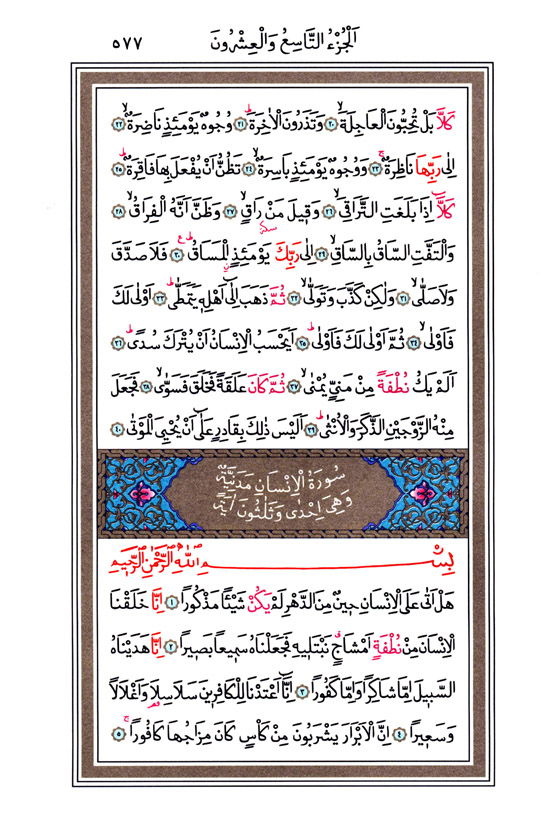 اَلْجُزْءُ التَّاسِعُ وَالْعِشْرُونَ ٥٧٧
كَلَّا بَلْ تُحِبُّونَ الْعَاجِلَةَۙ ﴿٢٠﴾ وَتَذَرُونَ الْاٰخِرَةَۜ ﴿٢١﴾ وُجُوهٌ يَوْمَئِذٍ نَاضِرَةٌۙ ﴿٢٢﴾
اِلٰى رَبِّهَا نَاظِرَةٌۚ ﴿٢٣﴾ وَوُجُوهٌ يَوْمَئِذٍ بَاسِرَةٌۙ ﴿٢٤﴾ تَظُنُّ اَنْ يُفْعَلَ بِهَا فَاقِرَةٌۜ ﴿٢٥﴾
كَلَّٓا اِذَا بَلَغَتِ التَّرَاقِيَۙ ﴿٢٦﴾ وَقِيلَ مَنْ رَاقٍۙ ﴿٢٧﴾ وَظَنَّ اَنَّهُ الْفِرَاقُۙ ﴿٢٨﴾
وَالْتَفَّتِ السَّاقُ بِالسَّاقِۙ ﴿٢٩﴾ اِلٰى رَبِّكَ يَوْمَئِذٍ الْمَسَاقُۜ ﴿٣٠﴾ فَلَا صَدَّقَ
وَلَا صَلّٰىۙ ﴿٣١﴾ وَلٰكِنْ كَذَّبَ وَتَوَلّٰىۙ ﴿٣٢﴾ ثُمَّ ذَهَبَ اِلٰٓى اَهْلِهٖ يَتَمَطّٰىۜ ﴿٣٣﴾ اَوْلٰى لَكَ
فَاَوْلٰىۙ ﴿٣٤﴾ ثُمَّ اَوْلٰى لَكَ فَاَوْلٰىۜ ﴿٣٥﴾ اَيَحْسَبُ الْاِنْسَانُ اَنْ يُتْرَكَ سُدًىۜ ﴿٣٦﴾
اَلَمْ يَكُ نُطْفَةً مِنْ مَنِيٍّ يُمْنٰىۙ ﴿٣٧﴾ ثُمَّ كَانَ عَلَقَةً فَخَلَقَ فَسَوّٰىۙ ﴿٣٨﴾ فَجَعَلَ
مِنْهُ الزَّوْجَيْنِ الذَّكَرَ وَالْاُنْثٰىۜ ﴿٣٩﴾ اَلَيْسَ ذٰلِكَ بِقَادِرٍ عَلٰٓى اَنْ يُحْيِيَ الْمَوْتٰى ﴿٤٠﴾
سُورَةُ الْاِنْسَانِ مَدَنِيَّةٌ
وَهِيَ اِحْدٰى وَثَلٰثُونَ اٰيَةً
بِسْمِ اللّٰهِ الرَّحْمٰنِ الرَّحِيمِ
هَلْ اَتٰى عَلَى الْاِنْسَانِ حِينٌ مِنَ الدَّهْرِ لَمْ يَكُنْ شَيْـًٔا مَذْكُورًا ﴿١﴾ اِنَّا خَلَقْنَا
الْاِنْسَانَ مِنْ نُطْفَةٍ اَمْشَاجٍۗ نَبْتَلِيهِ فَجَعَلْنَاهُ سَمِيعًا بَصِيرًا ﴿٢﴾ اِنَّا هَدَيْنَاهُ
السَّبِيلَ اِمَّا شَاكِرًا وَاِمَّا كَفُورًا ﴿٣﴾ اِنَّٓا اَعْتَدْنَا لِلْكَافِرِينَ سَلَاسِلَا۬ وَاَغْلَالًا
وَسَعِيرًا ﴿٤﴾ اِنَّ الْاَبْرَارَ يَشْرَبُونَ مِنْ كَأْسٍ كَانَ مِزَاجُهَا كَافُورًاۚ ﴿٥﴾